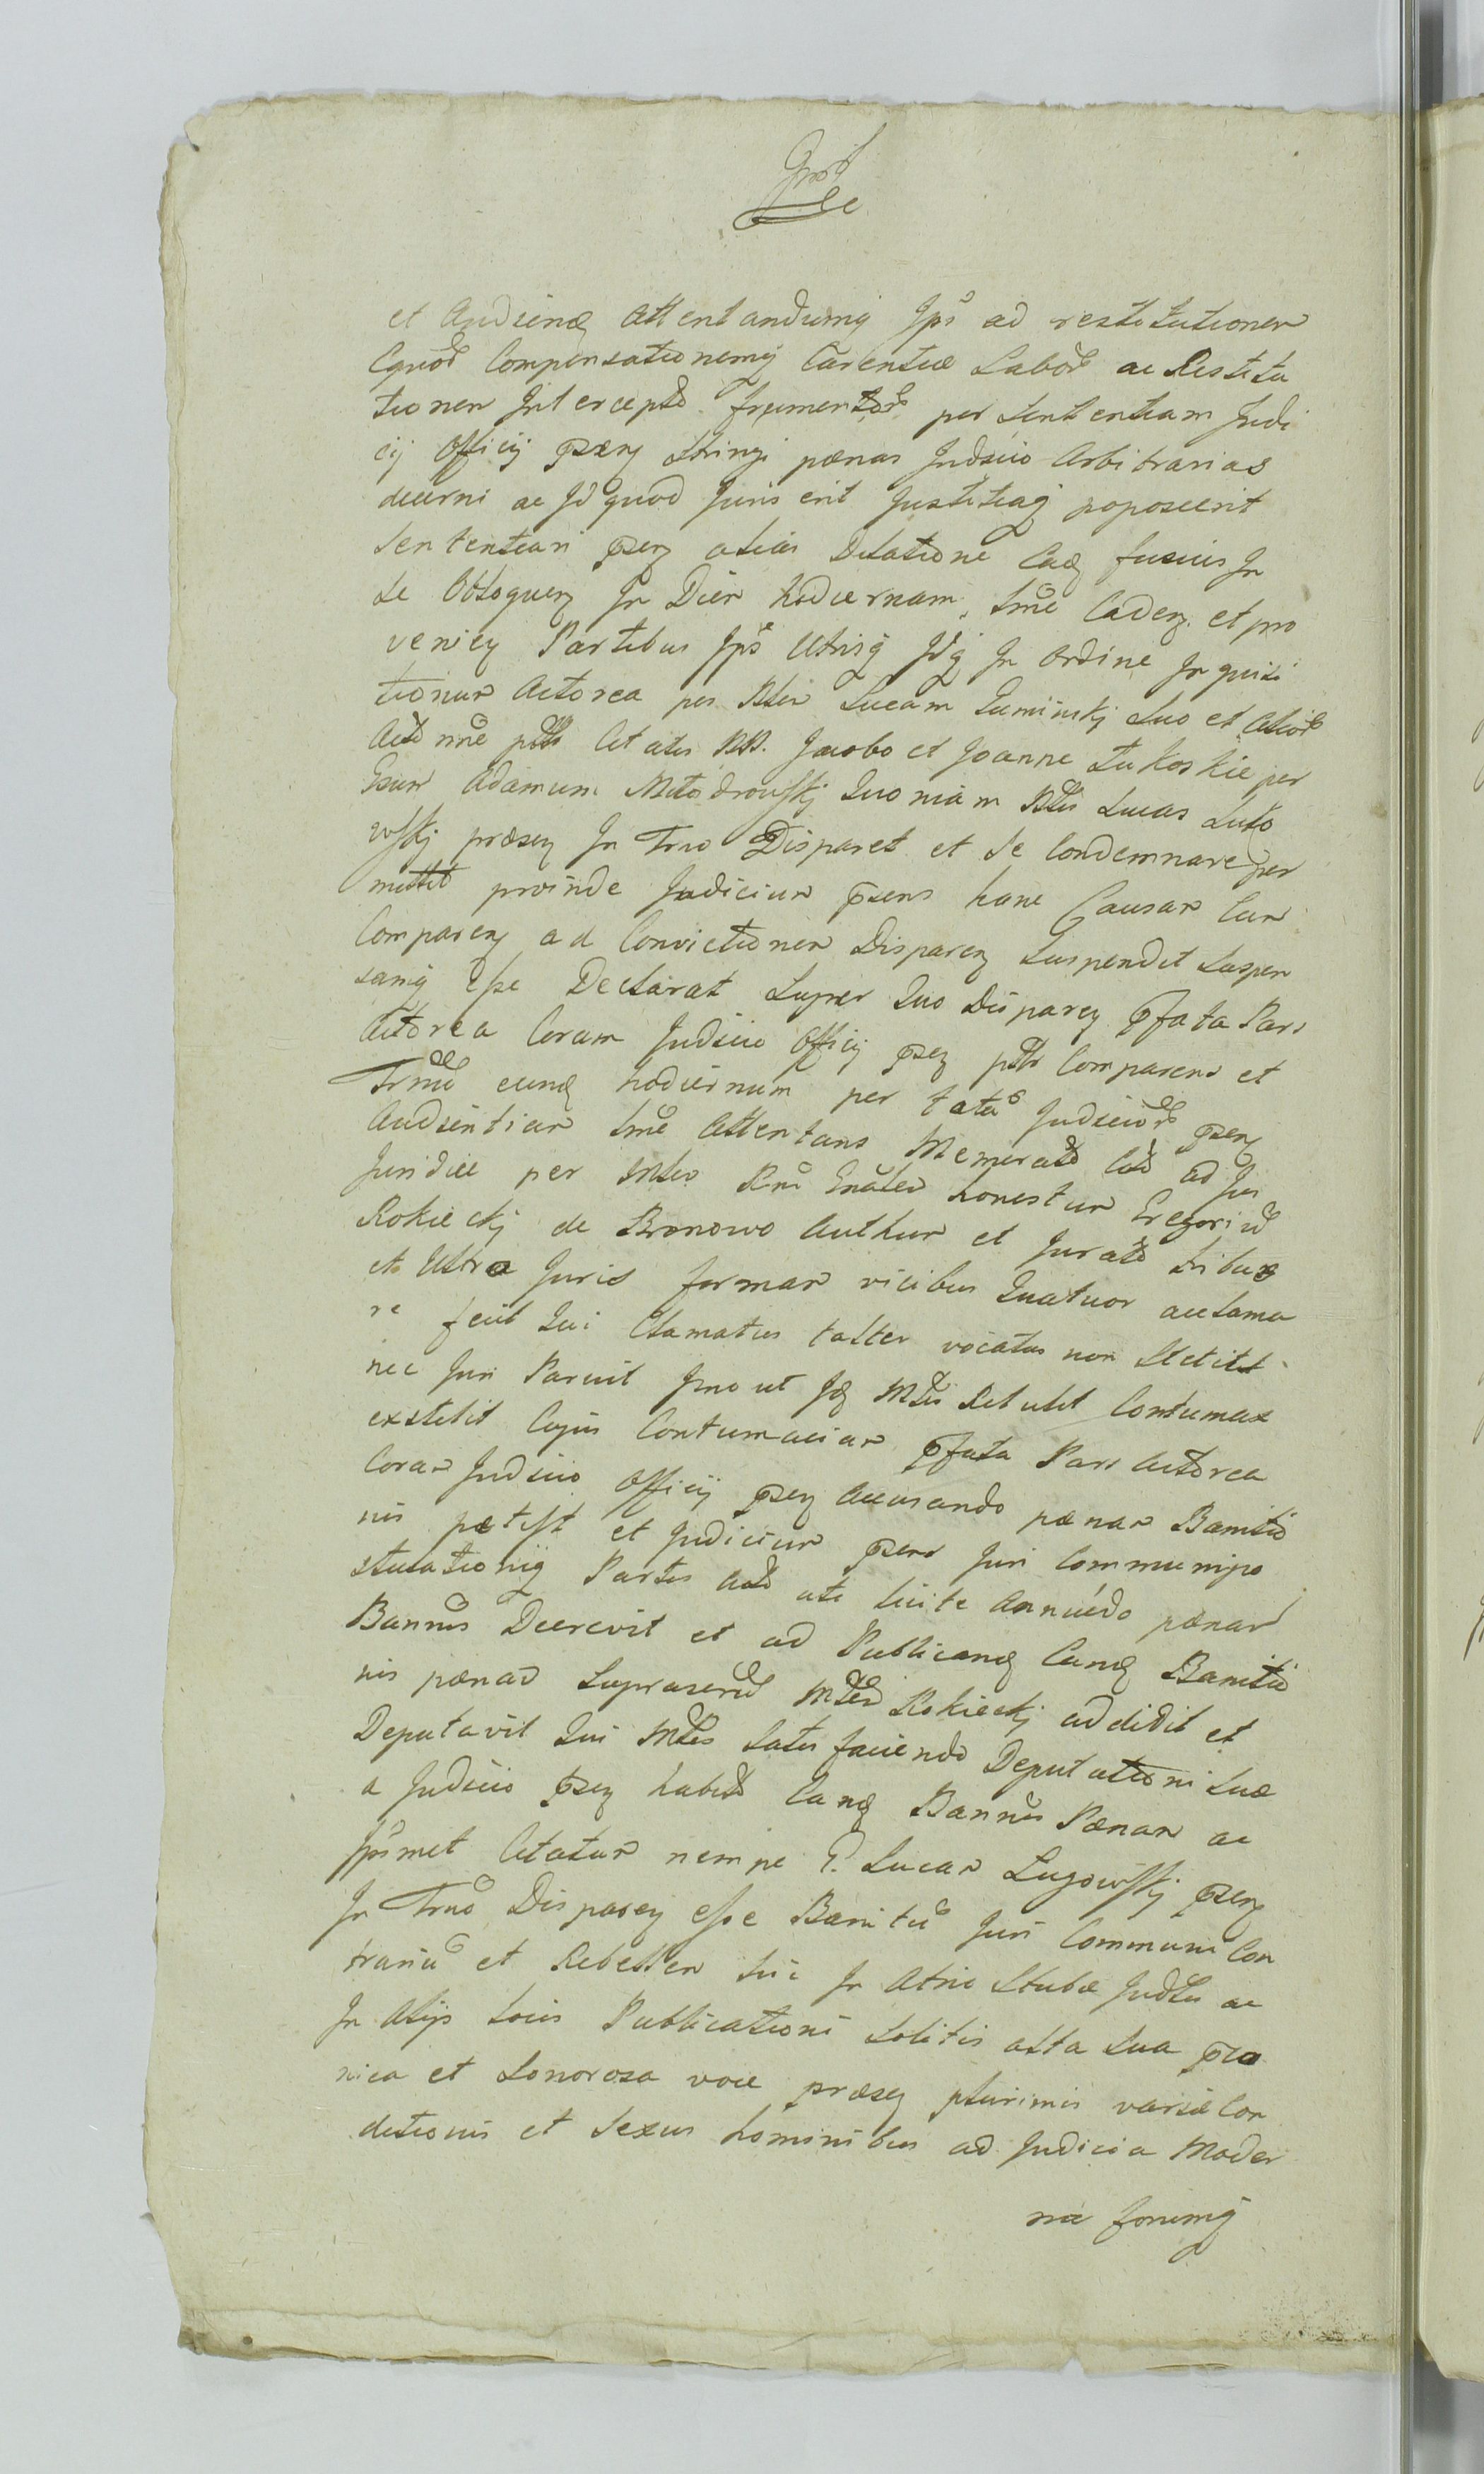 et Audienq attentandumq Ips ad restitutionem
Equor Compensationemq Carentiæ Labor ac Restitu
tionem Intercept frumentor per Sententiam Judi
cij Officij præn stringi pænas Judicio Arbitrarias
decerni ac Id quod Juris erit Justitiaq poposcerit
Sententiari psen alias Delatione fusius In
se Obloquen In Diem hodiernam Sme Caden et pro
venien Partibus Ips Utrisq In Ordine Inquisi
tionum Actorea per Luc Lucam suo et Alior
Act nne ptts Citatis NN. Jacobo et Joanne Lukoskie per
Gsum Adamum Quoniam Nblis Lucas
wskj præsen In Trno Disparet et se Condemnare per
mittit proinde Judicium psens hanc Causam Cum
Comparen ad Convictionem Disparen Suspendit Suspen
samq Esse Declarat Super Quo Disparen pfata Pars
Actorea Coram Judicio Officij psen ptts Comparens et
Trmu eunq hodiernum per tota Judicior psen
Audientiam Sme Attentans Memorat Cit ad Jus
Juridice per Mlem Rni Gnalem honestum Gregoriu
Rokieckj de Bronowo Authum et Jurat tribus
et Ultra Juris formam vicibus Quatuor acclama
re fecit Qui Clamatus talter vocatus non Stetit
nec Juri Paruit Imo ut Iq Mtlis Retulit Contumax
exstitit Cujus Contumaciam pfata Pars Actorea
Coram Judicio Officij psen accusando pænam Banitio
nis petyt et Judicium psens Juri Communi po
stulationiq Partis Act uti licite Annuedo pænam
Bannis Decrevit et ad Publicanq Canq Banitio
nis pænam Suprascrit Mtlem Rokieckj addidit et
Deputavit Qui Mtlis Satis faciendo Deputationi Suæ
a Judicio psen habit Canq Bannis Pænam ac
Ipsmet Citatum nempe G. Lucam Lugowskj psen
In Trno Disparen esse Banitu Juri Communi Con
trariu et Rebellem Sui In Atrio Stubæ Judlis ac
In Alijs Locis Publicationi Solitis alta Sua præ
nica et Sonorosa voce præsen plurimis variæ Con
ditionis et Sexus hominibus ad Judicia Moder
na forumq